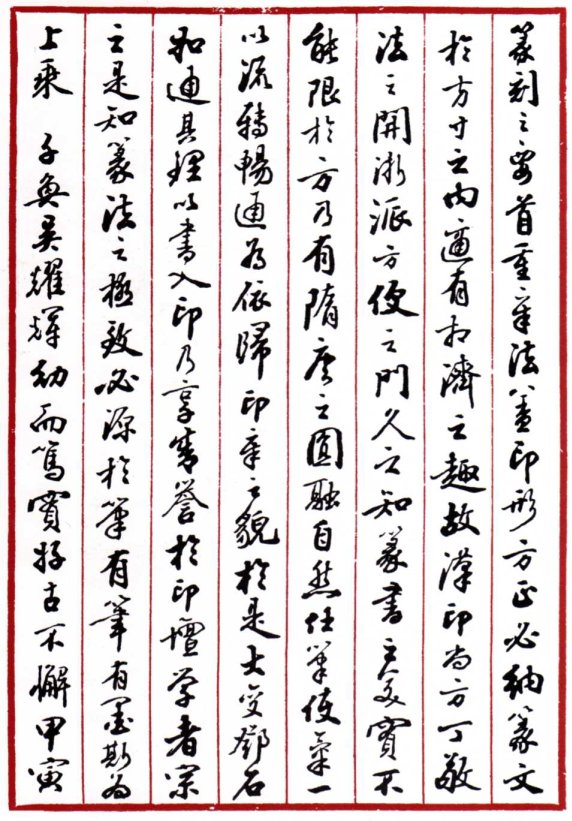 篆刻之要首重章法蓋印形方正必納篆文
於方寸之內適有相濟之趣故漢印尚方丁敬
法之開浙派方便之門久之知篆書之美實不
能限於方乃有隋唐之圓融自然任筆使氣一
以流轉暢通為依歸印章之貌於是大變鄧石
如通其理以書入印乃享譽於印壇學者宗
之是知篆法之極致必源於筆有筆有墨斯為
上乘 子奐吳耀輝幼而篤實好古不懈甲寅